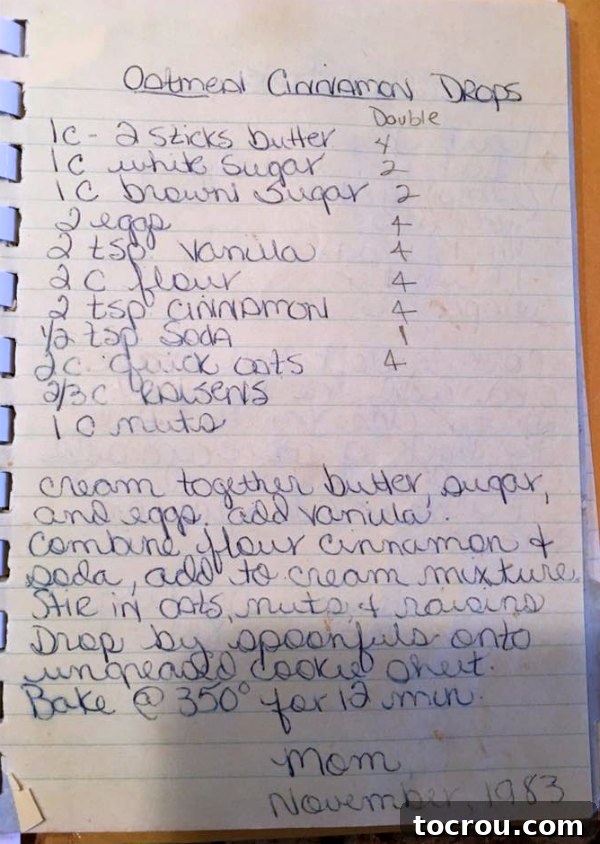 Oatmeal Cinnamon Drops
Double
1c - 2 sticks butter 4
1c white sugar 2
1c brown sugar 2
2 eggs 4
2 tsp vanilla 4
2 c flour 4
2 tsp cinnamon 4
1/2 tsp soda 1
2c quick oats 4
2/3 c Raisens
1 c nuts
cream together butter, sugar,
and eggs. add vanilla.
Combine flour cinnamon +
soda, add to cream mixture.
Stir in oats, nuts, + raisins
Drop by spoonfuls onto
ungreased cookie sheet.
Bake @ 350° for 12 min.
Mom
November, 1983
tocrou.com